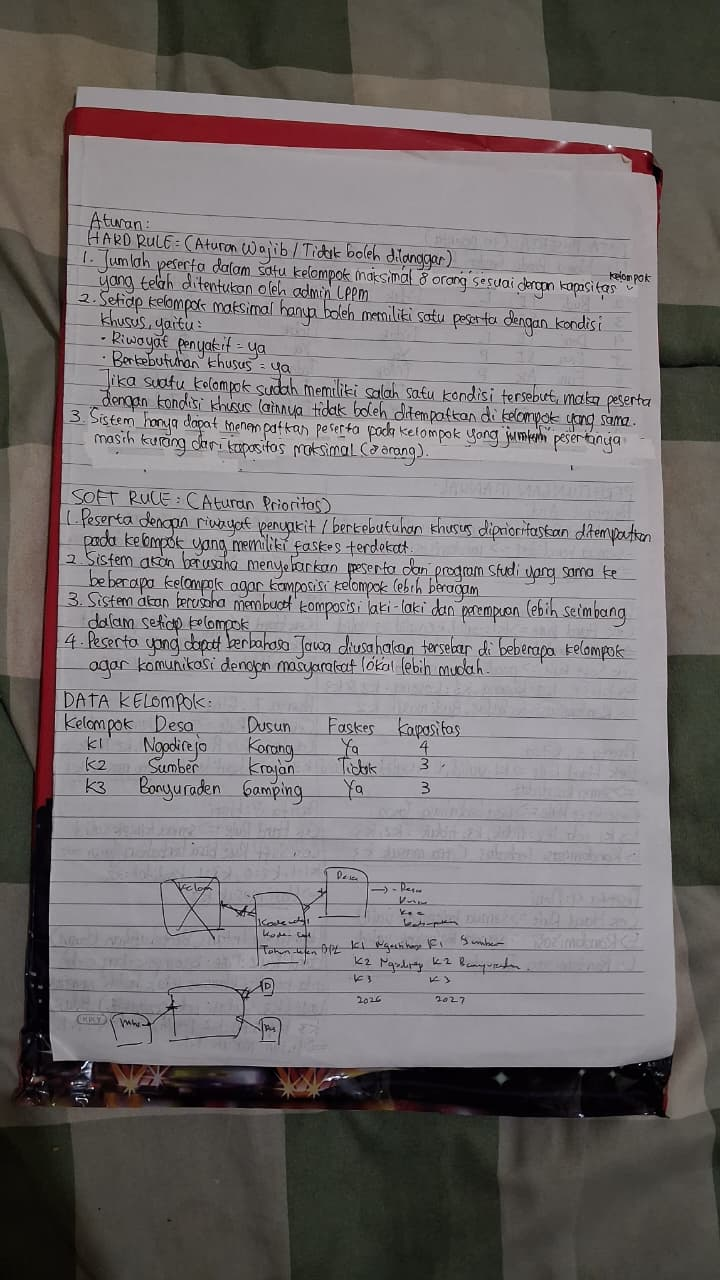 Aturan:
HARD RULE = (Aturan Wajib / Tidak boleh dilanggar)
1. Jumlah peserta dalam satu kelompok maksimal 8 orang sesuai dengan kapasitas kelompok
yang telah ditentukan oleh admin LPPM
2. Setiap kelompok maksimal hanya boleh memiliki satu peserta dengan kondisi
khusus, yaitu:
• Riwayat penyakit = ya
• Berkebutuhan khusus = ya
Jika suatu kelompok sudah memiliki salah satu kondisi tersebut, maka peserta
dengan kondisi khusus lainnya tidak boleh ditempatkan di kelompok yang sama.
3. Sistem hanya dapat menempatkan peserta pada kelompok yang jumlah pesertanya
masih kurang dari kapasitas maksimal (8 orang).
SOFT RULE: (Aturan Prioritas)
1. Peserta dengan riwayat penyakit / berkebutuhan khusus diprioritaskan ditempatkan
pada kelompok yang memiliki faskes terdekat.
2. Sistem akan berusaha menyebarkan peserta dari program studi yang sama ke
beberapa kelompok agar komposisi kelompok lebih beragam
3. Sistem akan berusaha membuat komposisi laki-laki dan perempuan lebih seimbang
dalam setiap kelompok
4. Peserta yang dapat berbahasa Jawa diusahakan tersebar di beberapa kelompok
agar komunikasi dengan masyarakat lokal lebih mudah.
DATA KELOMPOK:
Kelompok Desa Dusun Faskes Kapasitas
K1 Ngodirejo Korang Ya 4
K2 Sumber Krajan Tidak 3
K3 Banyuraden Gamping Ya 3
Desa
→ - Desa
K1 K1 Sumber
K2 K2 Banyuraden
K3 K3
2026 2027